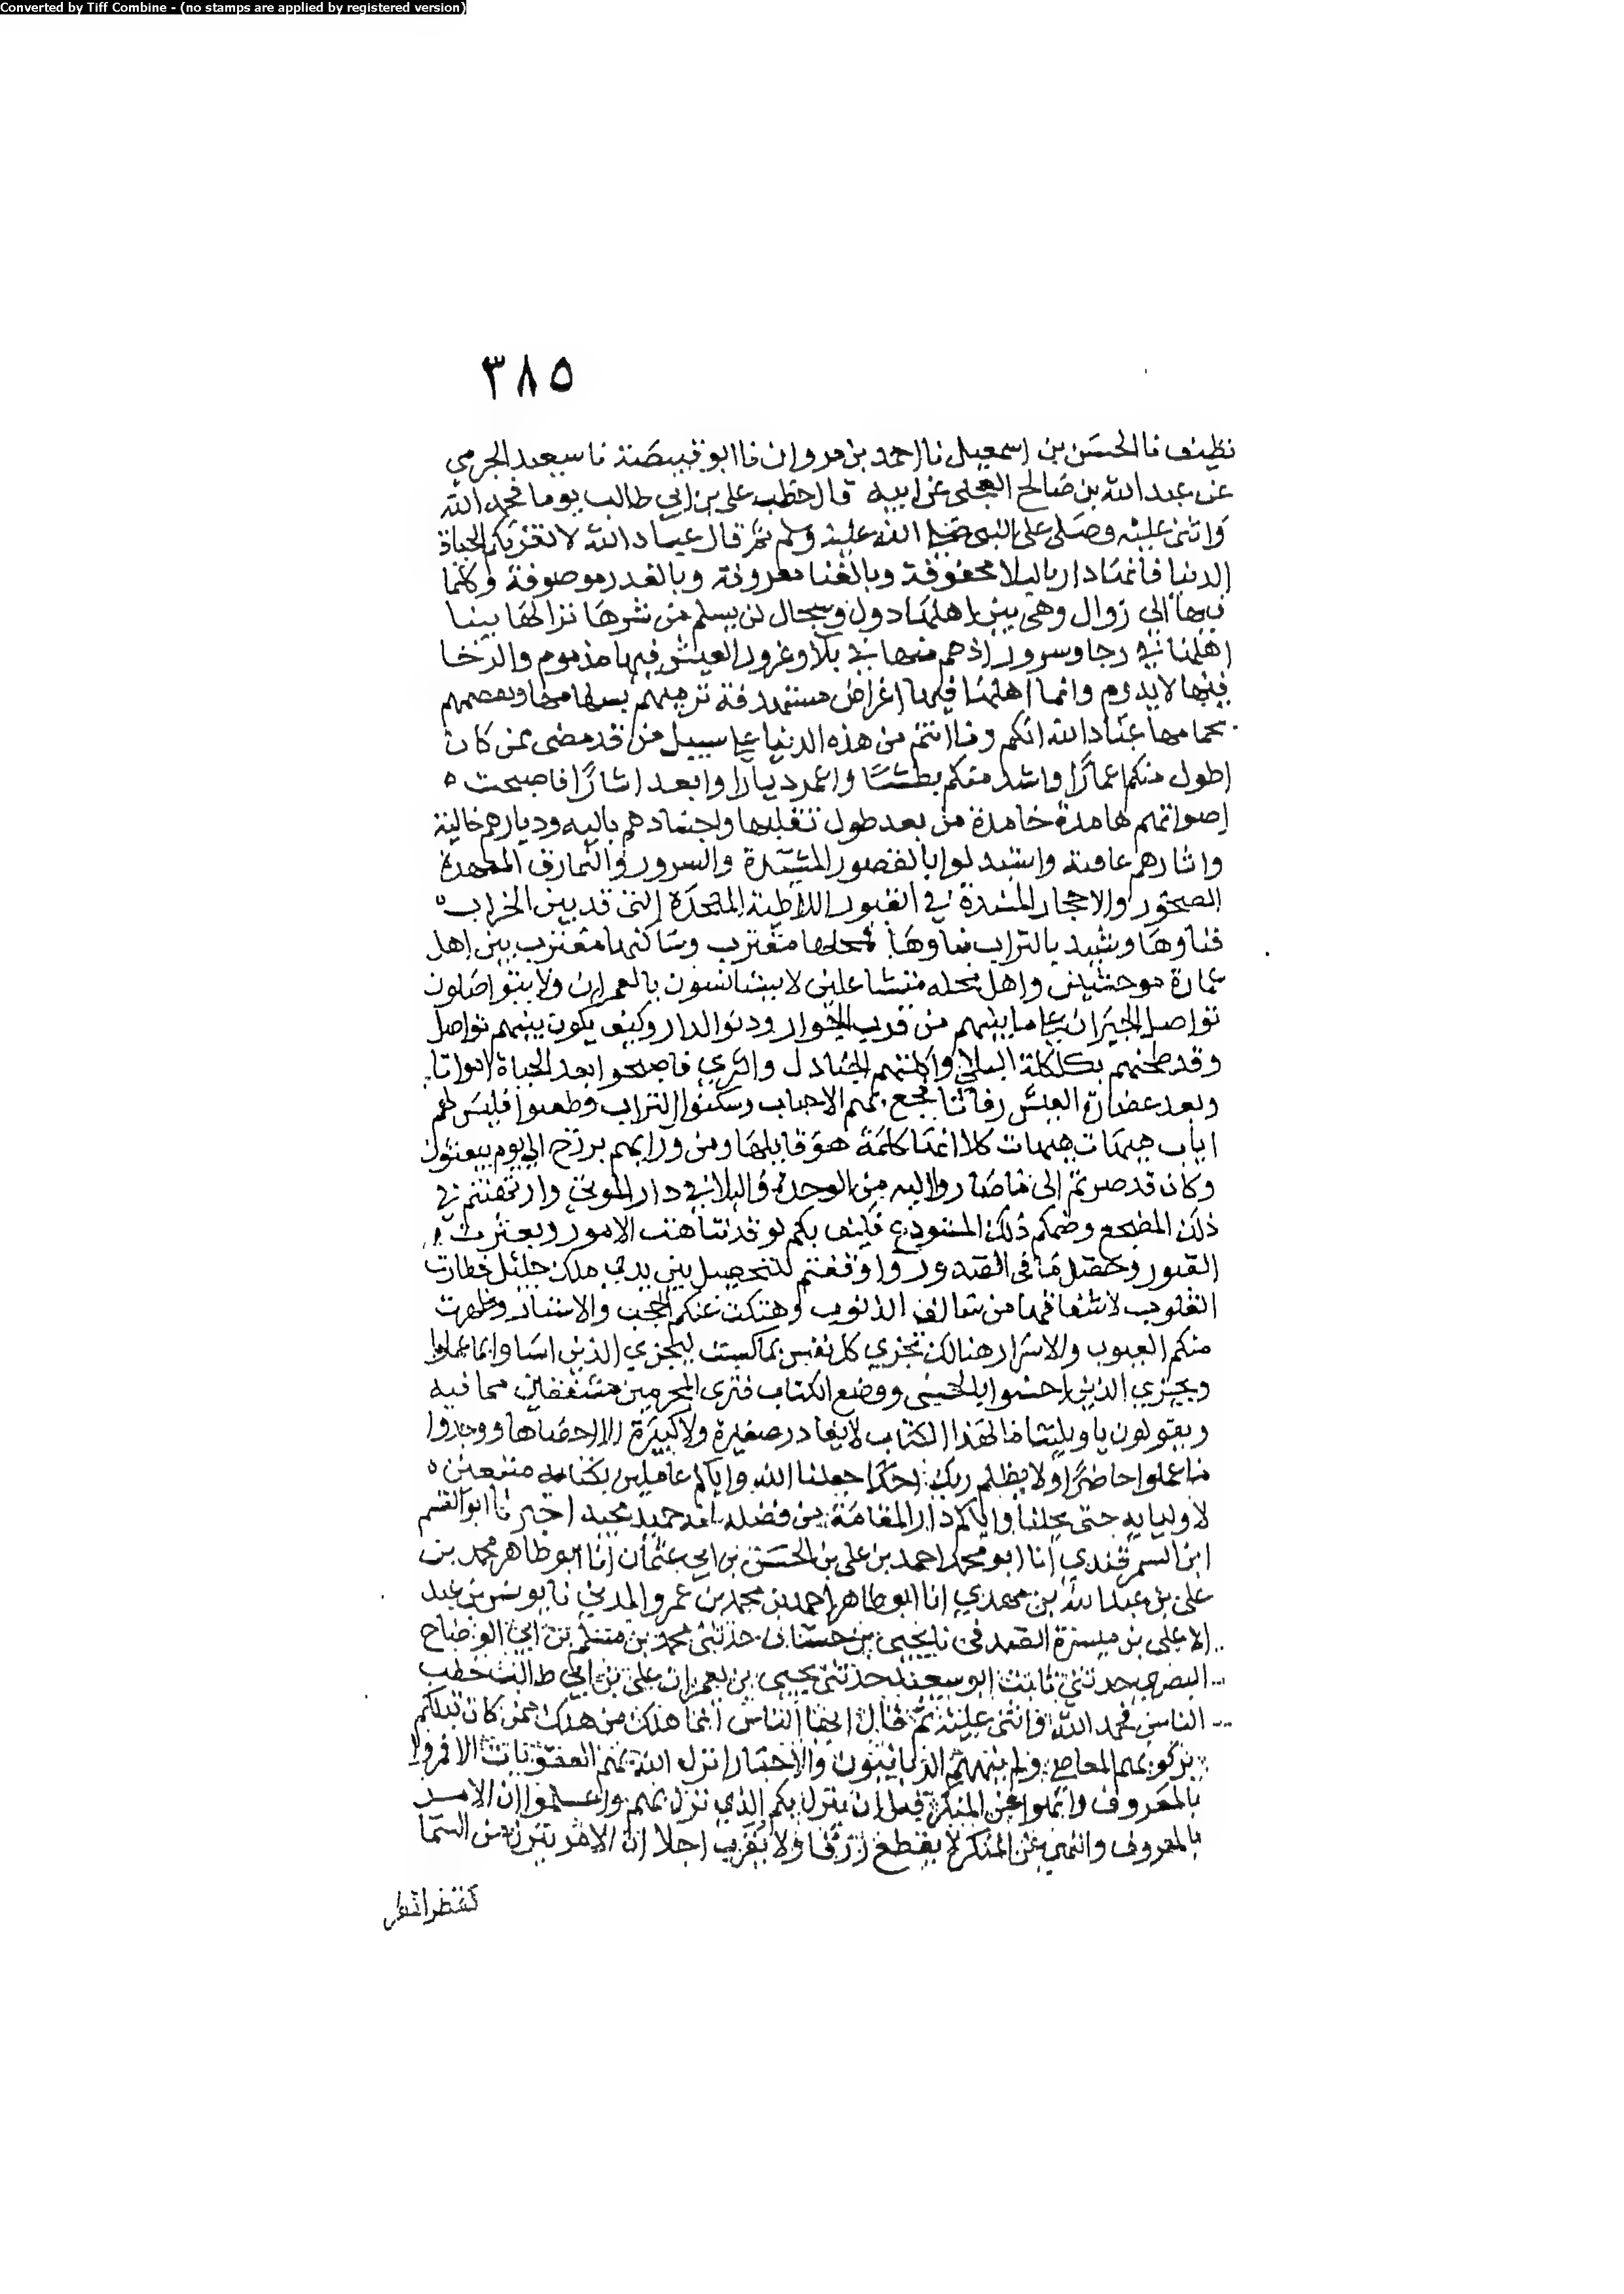 Converted by Tiff Combine - (no stamps are applied by registered version)
٣٨٥
نظيف نا الحسن بن اسمعيل نا احمد بن مروان نا ابو قبيصة نا سعيد الجرمي
عن عبد الله بن صالح العجلي عن ابيه قال خطب علي بن ابي طالب يوما فحمد الله
واثنى عليه وصلى على النبي صلى الله عليه وسلم ثم قال عباد الله لا تغرنكم الحياة
الدنيا فانها دار بالبلا محفوفة وبالفنا معروفة وبالغدر موصوفة وكلما
فيها الى زوال وهي بين اهلها دول وسجال لن يسلم من شرها نزالها بينا
اهلها في رخا وسرور اذ هم منها في بلا وغرور العيش فيها مذموم والرخا
فيها لا يدوم وانما اهلها فيها اغراض مستهدفة ترميهم بسهامها وتقصمهم
بحمامها عباد الله انكم وما انتم من هذه الدنيا على سبيل من قد مضى ممن كان
اطول منكم اعمارا واشد منكم بطشا واعمر ديارا وابعد اثارا فاصبحت
اصواتهم هامدة خامدة من بعد طول تقلبها واجسادهم باليه وديارهم خالية
واثارهم عافية واستبدلوا بالقصور المشيدة والسرور والنمارق الممهدة
الصخور والاحجار المسندة في القبور اللاطية الملحدة التي قد بين الخراب
فناوها وشيد بالتراب بناوها فمحلها مقترب وساكنها مغترب بين اهل
عمارة موحشين واهل محله متشاغلين لا يستانسون بالعمران ولا يتواصلون
تواصل الجيران على ما بينهم من قرب الجوار ودنو الدار وكيف يكون بينهم تواصل
وقد طحنهم بكلكلة البلى واكلتهم الجنادل والثرى فاصبحوا بعد الحياة امواتا
وبعد غضارة العيش رفاتا فجع بهم الاحباب وسكنوا التراب وظعنوا فليس لهم
اياب هيهات هيهات كلا انها كلمة هو قايلها ومن ورايهم برزخ الى يوم يبعثون
وكان قد صرتم الى ما صاروا اليه من الوحدة والبلا في دار الموتى وارتهنتم في
ذلك المضجع وضمكم ذلك المستودع فكيف بكم لو قد تناهت الامور وبعثرت
القبور وحصل ما في الصدور واوقفتم للتحصيل بين يدي ملك جليل فطارت
القلوب لاشفاقها من سالف الذنوب وهتكت عنكم الحجب والاستار وظهرت
منكم العيوب والاسرار هنالك تجزي كل نفس بما كسبت ليجزي الذين اساوا بما عملوا
ويجزي الذين احسنوا بالحسنى ووضع الكتاب فترى المجرمين مشفقين مما فيه
ويقولون يا ويلتنا مال هذا الكتاب لا يغادر صغيرة ولا كبيرة الا احصاها ووجدوا
ما عملوا حاضرا ولا يظلم ربك احدا جعلنا الله واياكم عاملين بكتابه متبعين
لاوليايه حتى يحلنا واياكم دار المقامة من فضله انه حميد مجيد اخبرنا ابو القسم
ابن السمرقندي انا ابو محمد احمد بن علي بن الحسن بن ابي عثمان انا ابو طاهر محمد بن
علي بن عبد الله بن مهدي انا ابو طاهر احمد بن محمد بن عمرو المديني نا يونس بن عبد
الاعلى بن ميسرة الصدفي نا يحيى بن حسان حدثني محمد بن مسلم بن ابي الوضاح
البصري حدثني ثابت ابو سعيد حدثني يحيى بن يعمر ان علي بن ابي طالب خطب
الناس فحمد الله واثنى عليه ثم قال ايها الناس انما هلك من هلك ممن كان قبلكم
بركوبهم المعاصي ولم ينههم الربانيون والاحبار انزل الله بهم العقوبات الا فمروا
بالمعروف وانهوا عن المنكر قبل ان ينزل بكم الذي نزل بهم واعلموا ان الامر
بالمعروف والنهي عن المنكر لا يقطع رزقا ولا يقرب اجلا ان الامر ينزل من السما
كقطر المطر